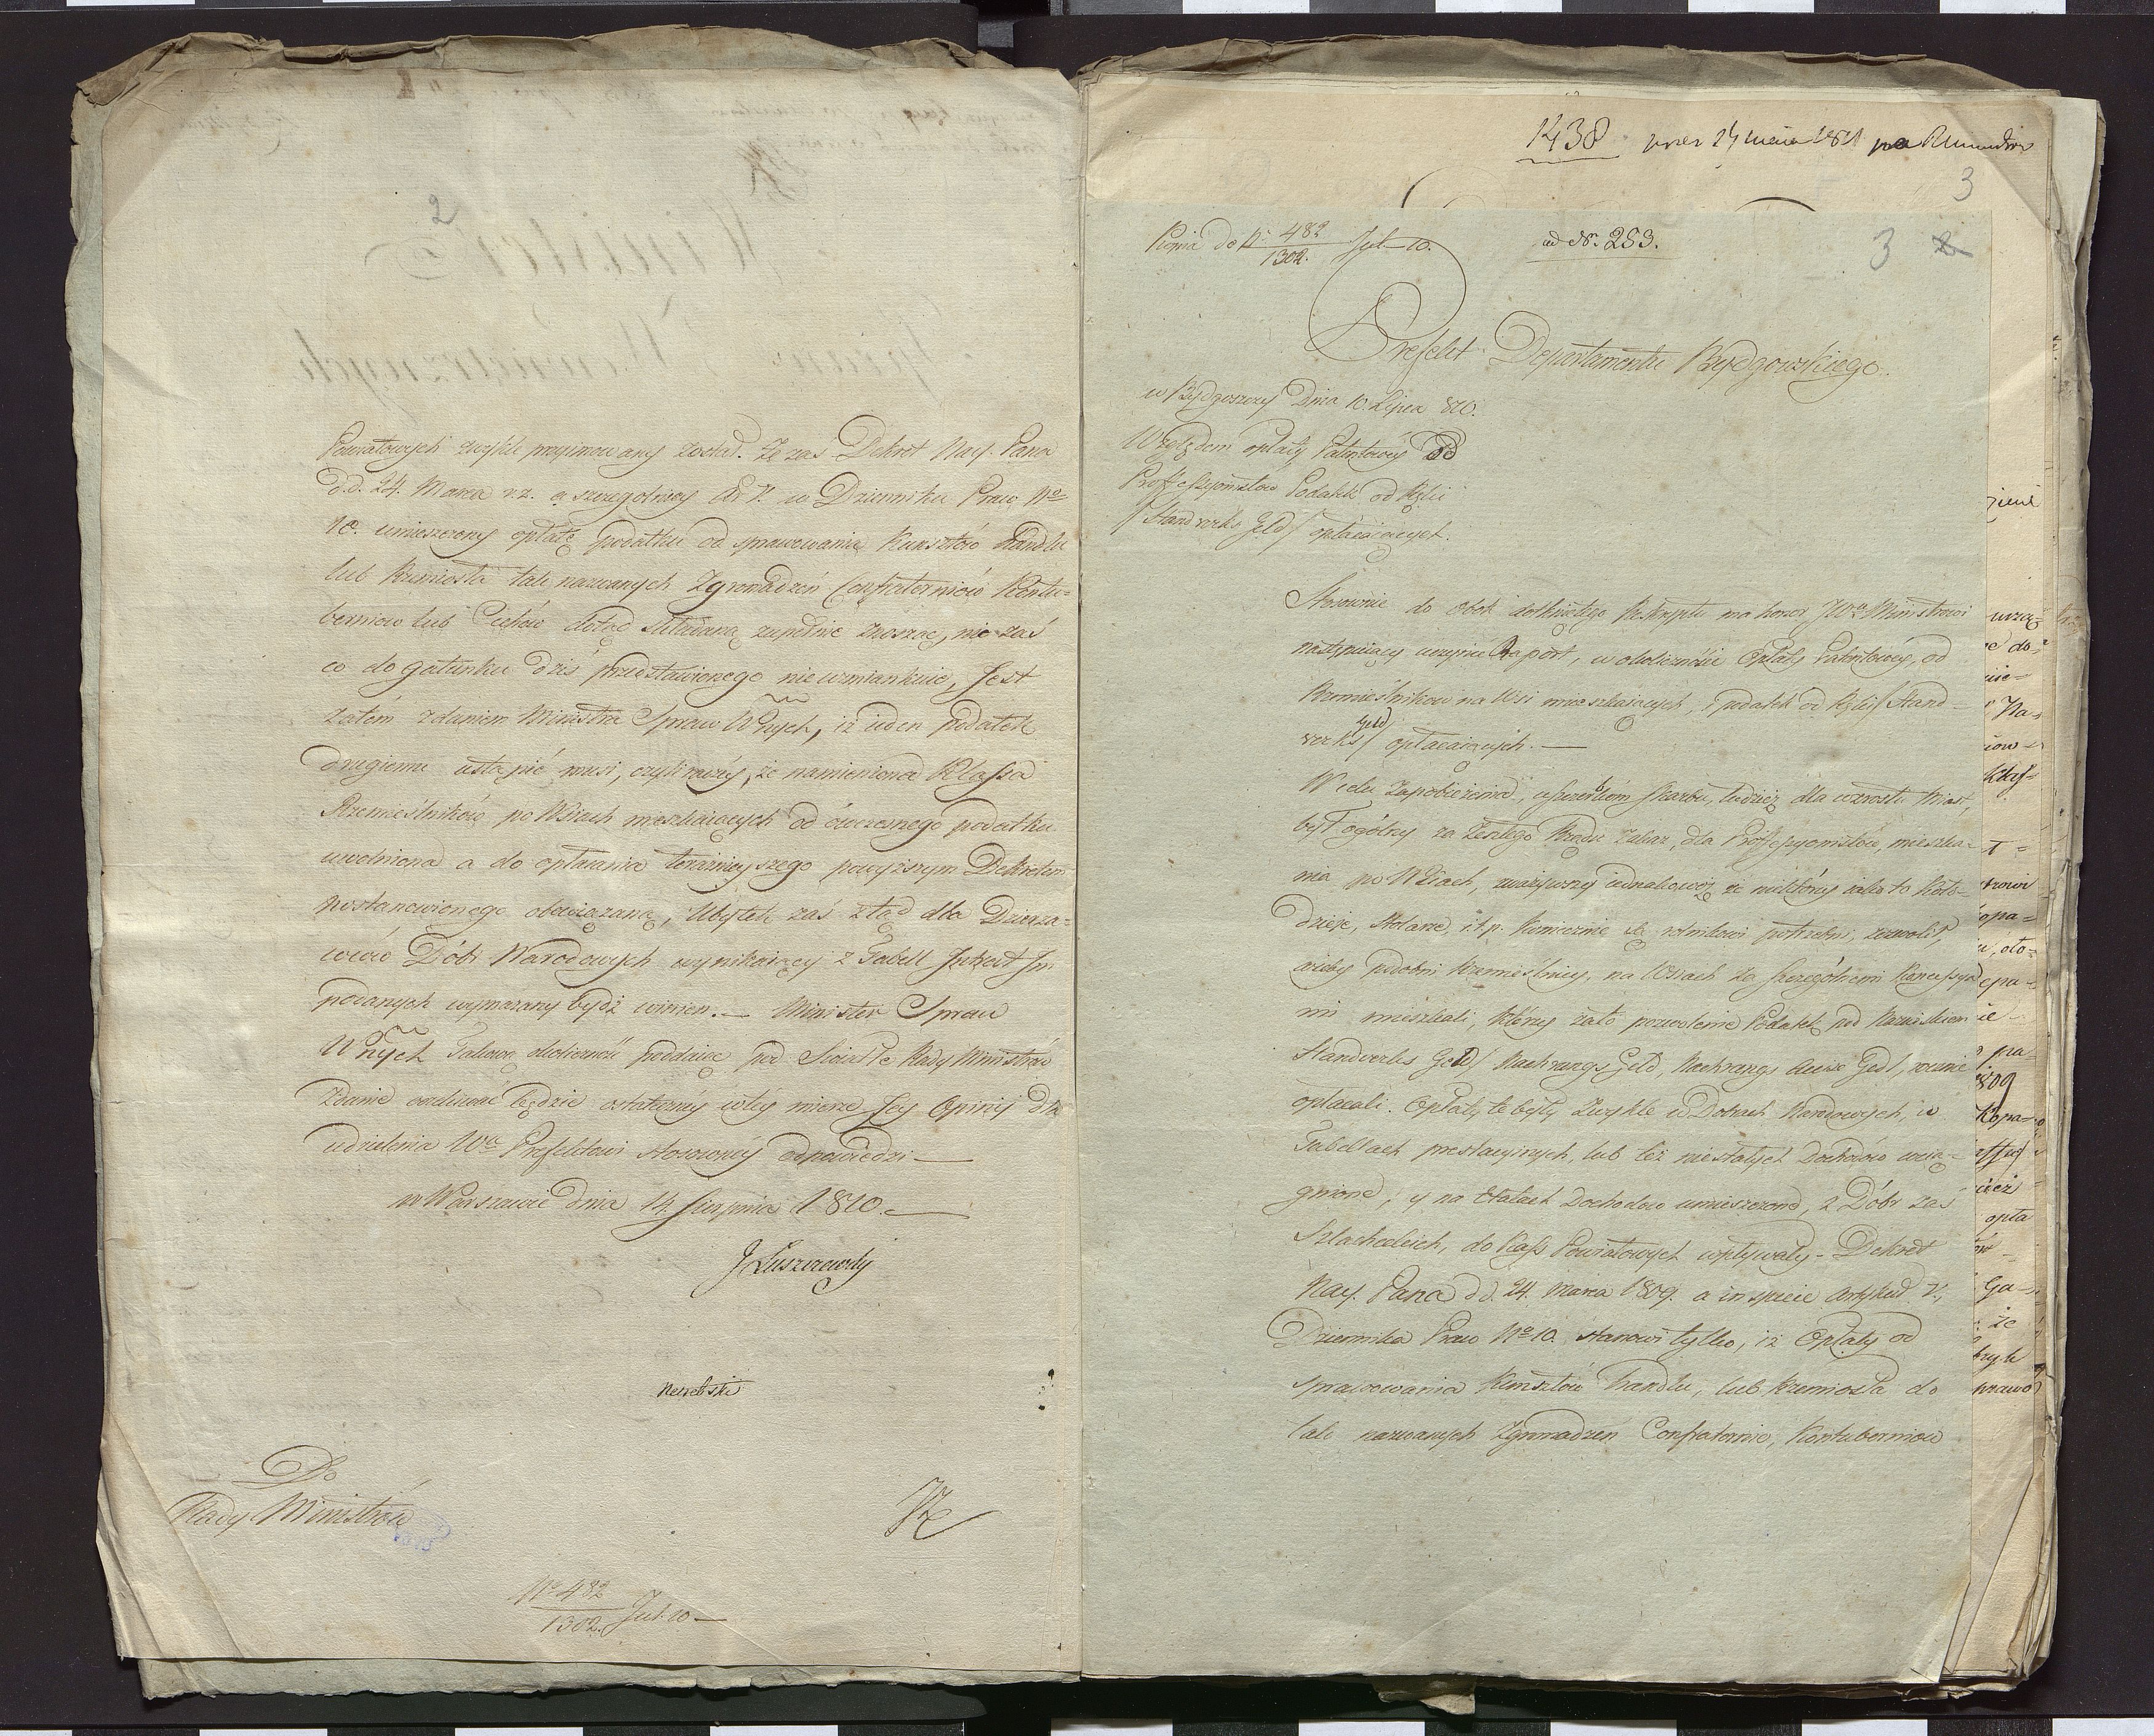 2
Powiatowych zwykle przyimowany został. Że zaś Dekret Nay. Pana
d.d. 24. Marca r.z. a szczegolniey Art 7. w Dzienniku Praw No
10. umieszczony opłatę podatku od sprawowania Kunsztów Handlu
lub Rzemiosła tak nazwanych Zgromadzeń Confraterniów Kontu-
berniow lub Cechów dotąd składaną zupełnie znosząc, nie zaś
co do gatunku dziś przedstawionego nie wzmiankuie, Jest
zatém zdaniem Ministra Spraw Wnych, iż ieden podatek
drugiemu ustąpić musi, czyli raczéy, że namieniona Klassa
Rzemieślników po Wsiach mieszkaiących od ówczesnego podatku
uwolniona a do opłacania teraznieyszego powyższym Dekretem
postanowionego obowiązaną, Ubytek zaś ztąd dla Dzierża-
wców Dóbr Narodowych wynikaiący z Tabell
podanych wymazany bydź winien. — Minister Spraw
Wnych Takową okoliczność poddaiąc pod Swiatłe Rady Ministrów
Zdanie oczekiwać będzie ostateczney w tey mierze Jey Opinii dla
udzielenia Wu Prefektowi stosowney odpowiedzi —
w Warszawie dnia 14. Sierpnia 1810. —
J Łuszczewski
Do
Rady Ministrów
No 482
1302. Jul. 10 —
1438
3
Kopia do No 482
1302. Jul. 10.
ad Nr. 253.
3 2
Prefekt Departamentu Bydgoskiego.
w Bydgoszczy Dnia 10. Lipca 810.
Względem opłaty Patentowéy Od
Proffessyonistow Podatek od Kęlii
/Standwerks Geld/ opłacaiących.
Stosownie do obok dotkniętego Reskryptu ma honor JWu Ministrowi
następuiący uczynić Raport, w okoliczności Opłaty Patentowey, od
Rzemieślnikow na Wsi mieszkaiących, i podatek od Kęlii /Stand-
werks Geld/ opłacaiących. —
W celu zapobieżenia, uszczerbkom Skarbu, tudzież dla wzrostu Miast,
był ogólny za Zeszłego Rządu zakaz, dla Proffessyonistów, mieszka-
nia po Wsiach, zważywszy iednakowoż że niektórzy iako to Koło-
dzieje, Stolarze, i.t.p. koniecznie są rolnikowi potrzebni, zezwolił,
ażeby podobni Rzemieślnicy, na Wsiach za szczególnemi Koncessya-
mi mieszkali, którzy zato pozwolenie Podatek pod Nazwiskiem
Standwerks Geld/ Nachrungs Geld, Nachrungs Accise Geld/, rocznie
opłacali. Opłaty te były zwykle w Dobrach Narodowych, w
Tabellach prestacyinych, lub też niestałych Dochodów wcią-
gnione, y na Etatach Dochodow umieszczone, z Dóbr zaś
Szlacheckich, do Kass Powiatowych wpływały – Dekret
Nay. Pana d.d. 24. Marca 1809. a in specie Artykuł 7.,
Dziennika Praw No 10. stanowi tylko, iż Opłaty od
sprawowania Kunsztów Handlu, lub Rzemiosła do
tak nazwanych Zgromadzeń Confraternio, Kontuberniow